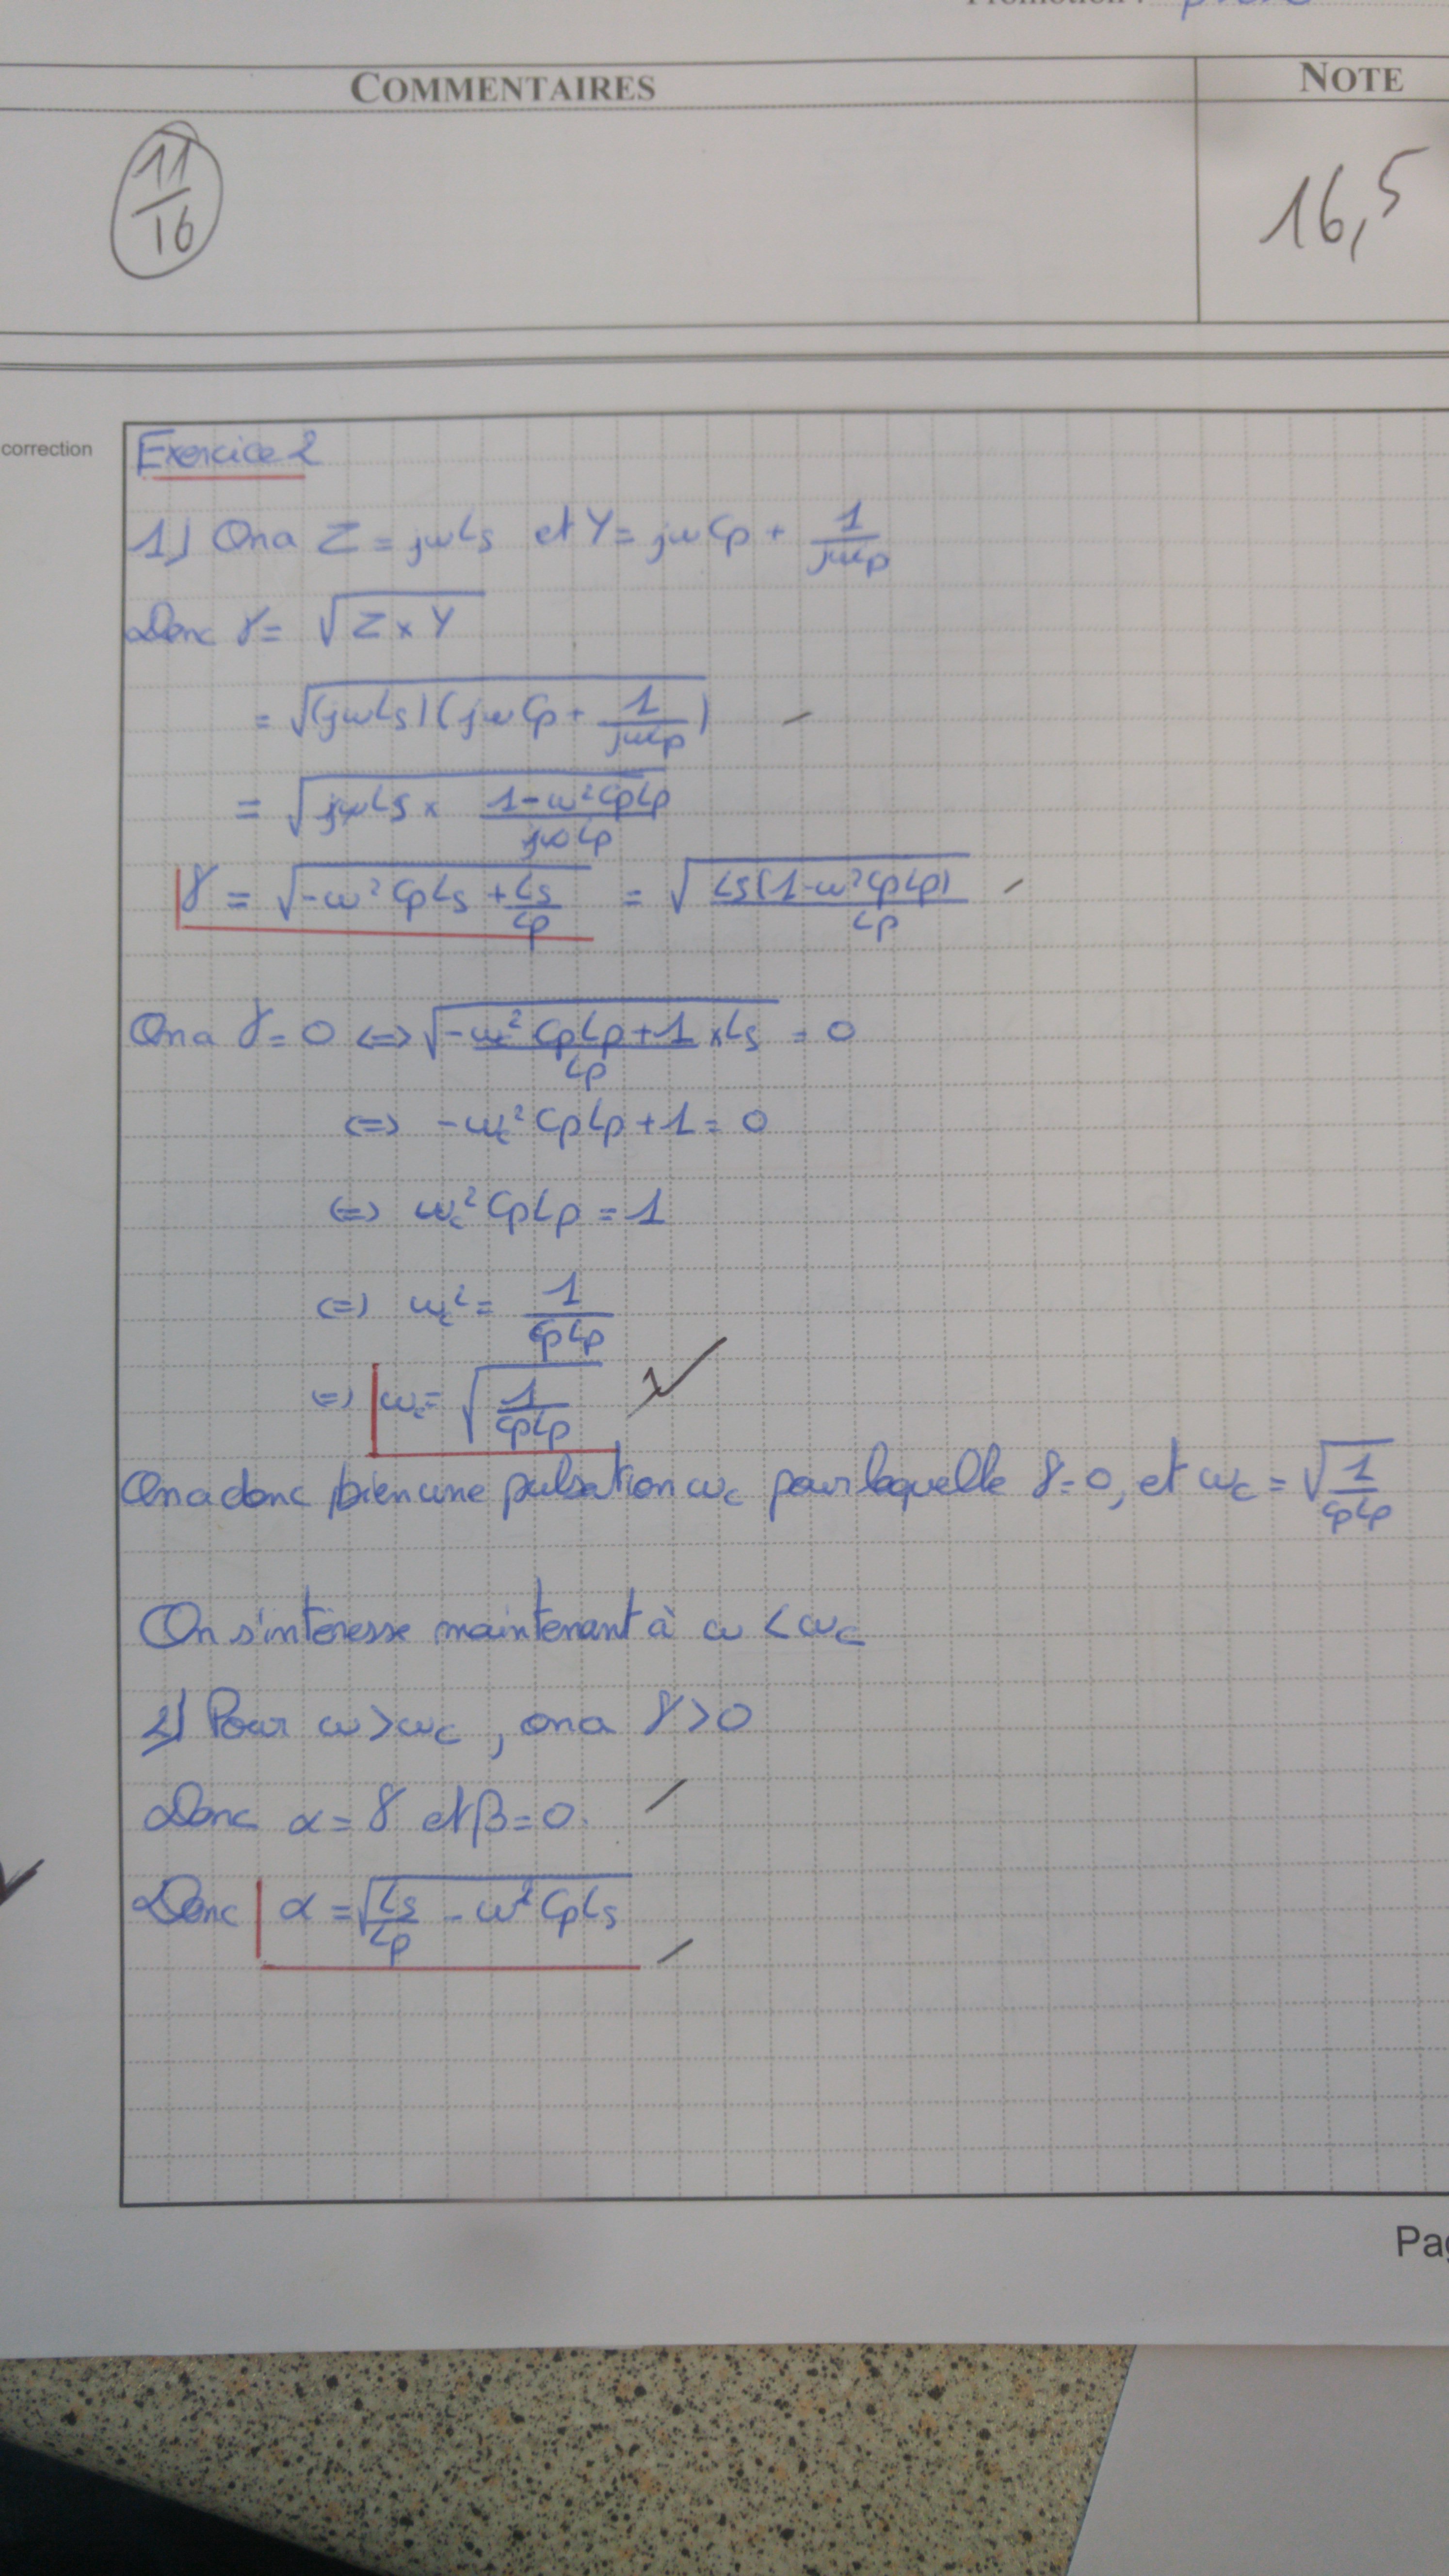 Promotion :
COMMENTAIRES
NOTE
11/16
16,5
correction
Exercice 2
1) On a Z = jωLs et Y = jωCp + 1/(jωLp)
Donc γ = √(Z × Y)
= √((jωLs)(jωCp + 1/(jωLp)))
= √(jωLs × (1-ω²CpLp)/(jωLp))
γ = √(-ω²CpLs + Ls/Lp) = √(Ls(1-ω²CpLp)/Lp)
On a γ = 0 <=> √((-ωc²CpLp+1)/Lp × Ls) = 0
<=> -ωc²CpLp + 1 = 0
<=> ωc²CpLp = 1
<=> ωc² = 1/(CpLp)
<=> ωc = √(1/(CpLp)) 1
On a donc bien une pulsation ωc pour laquelle γ=0, et ωc = √(1/(CpLp))
On s'intéresse maintenant à ω < ωc
2) Pour ω > ωc, on a γ > 0
Donc α = γ et β = 0.
Donc α = √(Ls/Lp - ω²CpLs)
Pag